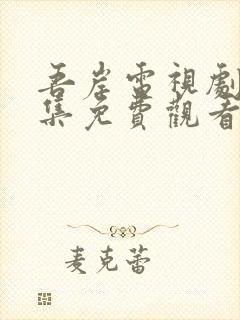 吾岸雷視劇
集免費觀看
麦克蕾